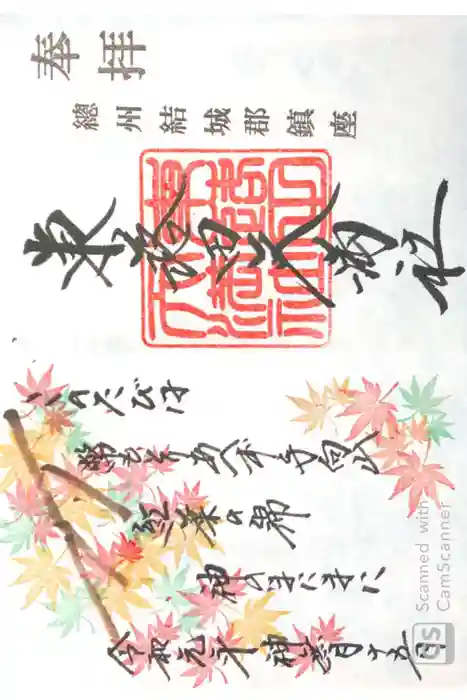 奉拝
總州結城郡鎮座
東蕗田天満社
このたびは
幣もとりあへず手向山
紅葉の錦
神のまにまに
令和元年神無月十五日
CS
Scanned with
CamScanner